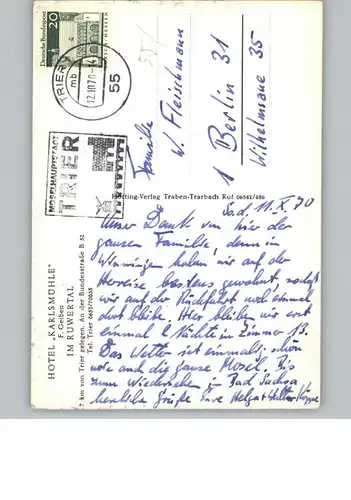 Deutsche Bundespost
20
HESSEN
TRIER 1
mb
12.10.70-14
55
MOSELHAUPTSTADT
TRIER
Familie
W. Fleischmann
1 Berlin 31
Wilhelmsaue 35
-Verlag Traben-Trarbach Ruf 06541/486
So.d. 11.X.70
Unser Dank von hier der
ganzen Familie, denn in
Winningen haben wir auf der
Herreise bestens gewohnt,
wir auf der Rückfahrt noch einmal
dort bleibe. Hier bleiben wir erst
einmal 2 Nächte in Zimmer 13.
Das Wetter ist einmalig schön
und die ganze Mosel. Bis
zum Wiedersehen in Bad Sachsa
herzliche Grüße Eure Helga + Walter
HOTEL „KARLSMÜHLE"
F. Geiben
IM RUWERTAL
7 km von Trier gelegen, An der Bundesstraße B 52
Tel. Trier 0651/70035